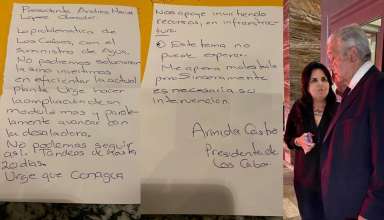 Presidente Andres Manuel
Lopez Obrador.
La problematica de
Los Cabos, con el
suministro de Agua.
No podemos solucionar
la sino invertimos
en eficientar la actual
planta. Urge hacer
la ampliación de un
modulo mas y parale
lamente avanzar con
la desaladora.
No podemos seguir
asi. Tandeos de hasta
20 dias.
Urge que Conagua
Nos apoye invirtiendo
recursos, en infraestruc
tura.
Este tema no
puede esperar.
Me apena molestarlo
pero sinceramente
es necesaria su
intervención.
Armida Castro
Presidente de
Los Cabos